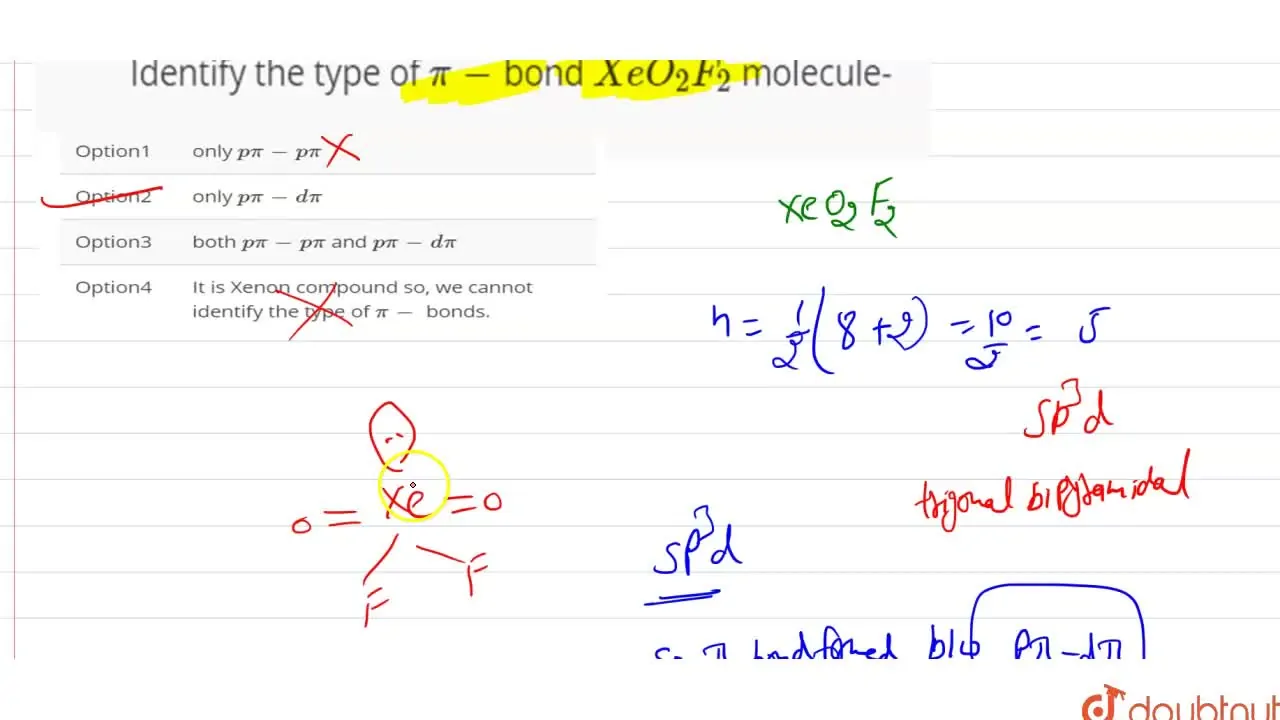 Identify the type of π − bond XeO₂F₂ molecule-
Option1 only pπ − pπ
Option2 only pπ − dπ
Option3 both pπ − pπ and pπ − dπ
Option4 It is Xenon compound so, we cannot
identify the type of π − bonds.
XeO₂F₂
n = 1/2 (8 + 2) = 10/2 = 5
sp³d
trigonal bipyramidal
Xe
O = = O
F F
sp³d
so π bond formed b/w pπ − dπ
doubtnut